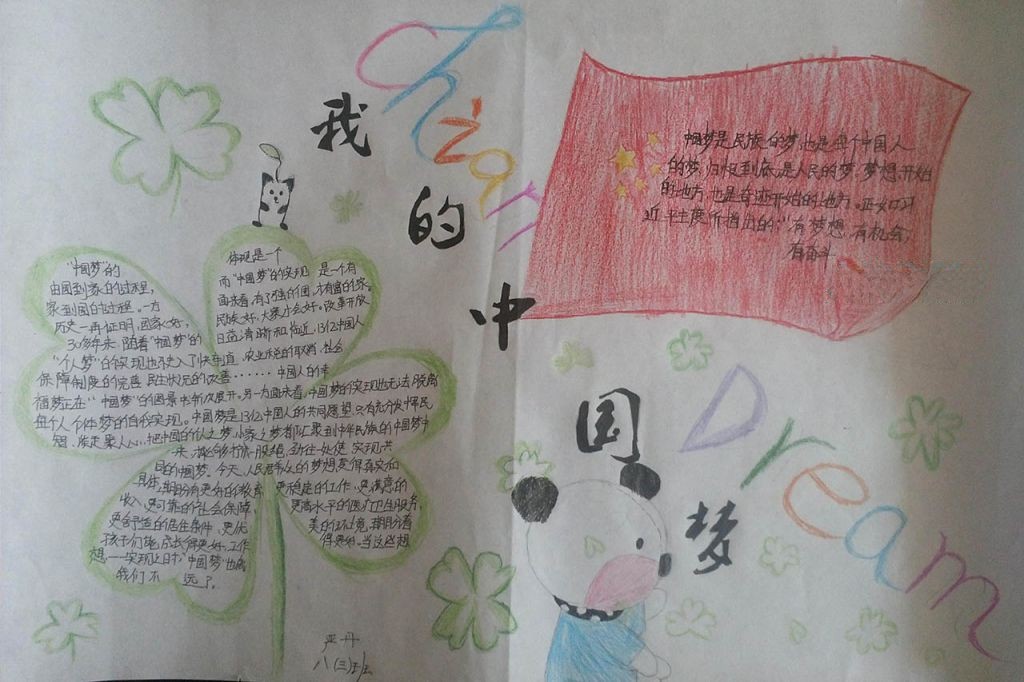 我的中国梦
China
Dream
中国梦是民族的梦,也是每个中国人
的梦.归根到底是人民的梫.梦想开始
的地方,也是奇迹开始的地方.正如习
近平主席所指出的:“有梦想,有机会,
有奋斗
“中国梦”的 体现是一个
由国到家的过程, 而“中国梦”的实现 是一个有
家到国的过程。一方 面来看,有了强的国,才有富的家。
历史一再证明,国家好, 民族好,大家才会好。改革开放
30多年来 随着“中国梦”的 日益清晰和临近,13亿中国人
“个人梦”的实现也驶入了快车道,农业税的取消,社会
保障制度的完善 民生状况的改善……中国人的幸
福梦正在“中国梦”的图景中渐次展开。另一方面来看,中国梦的实现也无法脱离
每个人个体梦的自我实现。中国梦是13亿中国人的共同愿望.只有充分发挥民
智,
把中国的个人之梦,小家之梦都汇聚到中华民族的中国梦中
来,才能够拧成一股绳,劲往一处使 实现共
同的中国梦。今天,人民群众的梦想变得真实和
具体,期盼有更好的教育 更稳定的工作,更满意的
收入,更可靠的社会保障, 更高水平的医疗卫生服务,
更舒适的居住条件,更优 美的环境,期盼着
孩子们能成长得更好,工作 得更好。当这些想
想一一实现之日时“中国梦”也离
我们不 远了。
严丹
八(三)班